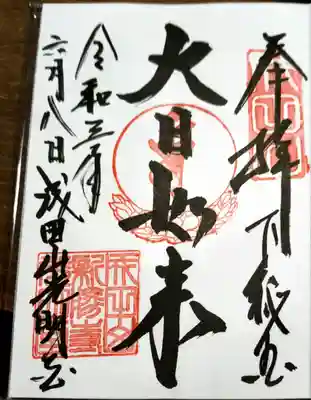 奉拝 下総国
大日如来
令和三年
六月八日 成田山光明堂